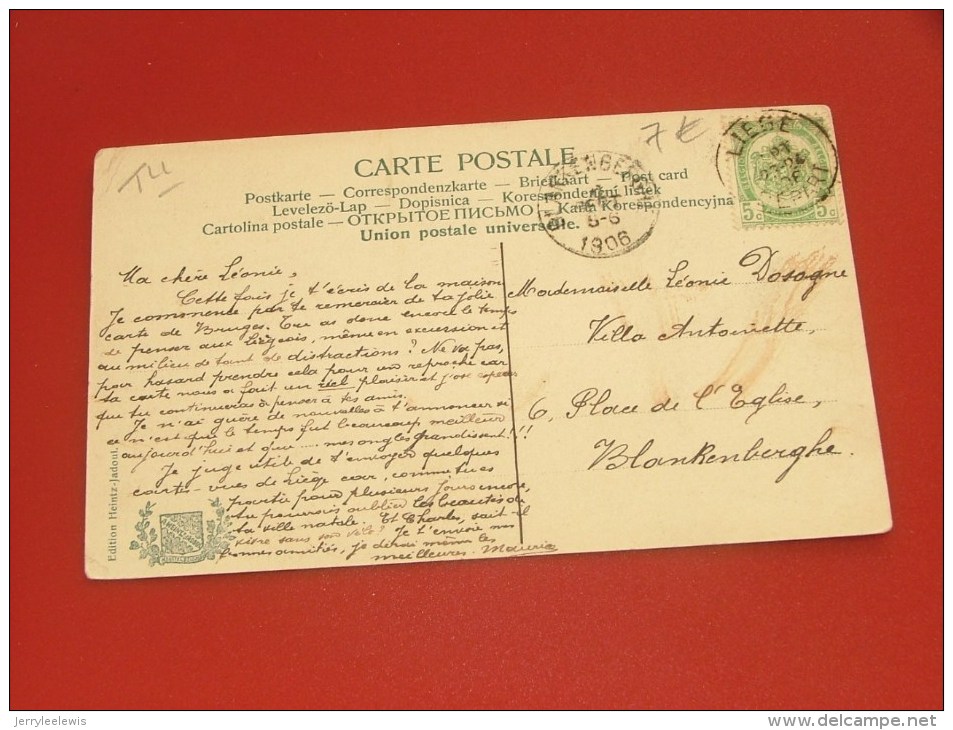 TU
7 €
CARTE POSTALE
Postkarte — Correspondenzkarte — Briefkaart — Post card
Levelezõ-Lap — Dopisnica — Korespondenční listek
Cartolina postale — ОТКРЫТОЕ ПИСЬМО — Karta Korespondencyjna
Union postale universelle.
BLANKENBERGHE
5-6
1906
LIEGE
5c 5c
Ma chère Léonie,
Cette fois je t'écris de la maison
Je commence par te remercier de ta jolie
carte de Bruges. Tu as donc encore le temps
de penser aux Liégeois, même en excursion et
au milieu de tant de distractions? Ne va pas,
par hasard prendre cela pour un reproche car
ta carte nous a fait un réel plaisir et j'ose espérer
que tu continueras à penser à tes amis.
Je n'ai guère de nouvelles à t'annoncer si
ce n'est que le temps fut beaucoup meilleur
aujourd'hui et que.... mes ongles grandissent!!!
Je juge utile de t'envoyer quelques
cartes-vues de Liège car, comme tu es
partie pour plusieurs jours encore,
tu pourrais oublier les beautés de
ta ville natale. Et Charles, sait-il
vivre sans son vélo? Je t'envoie mes
bonnes amitiés, je dirai même les
meilleures. Maurice
Mademoiselle Léonie Dosogne
Villa Antoinette,
6, Place de l'Eglise,
Blankenberghe.
Edition Heintz-Jadoul.
jerryleelewis
www.delcampe.net